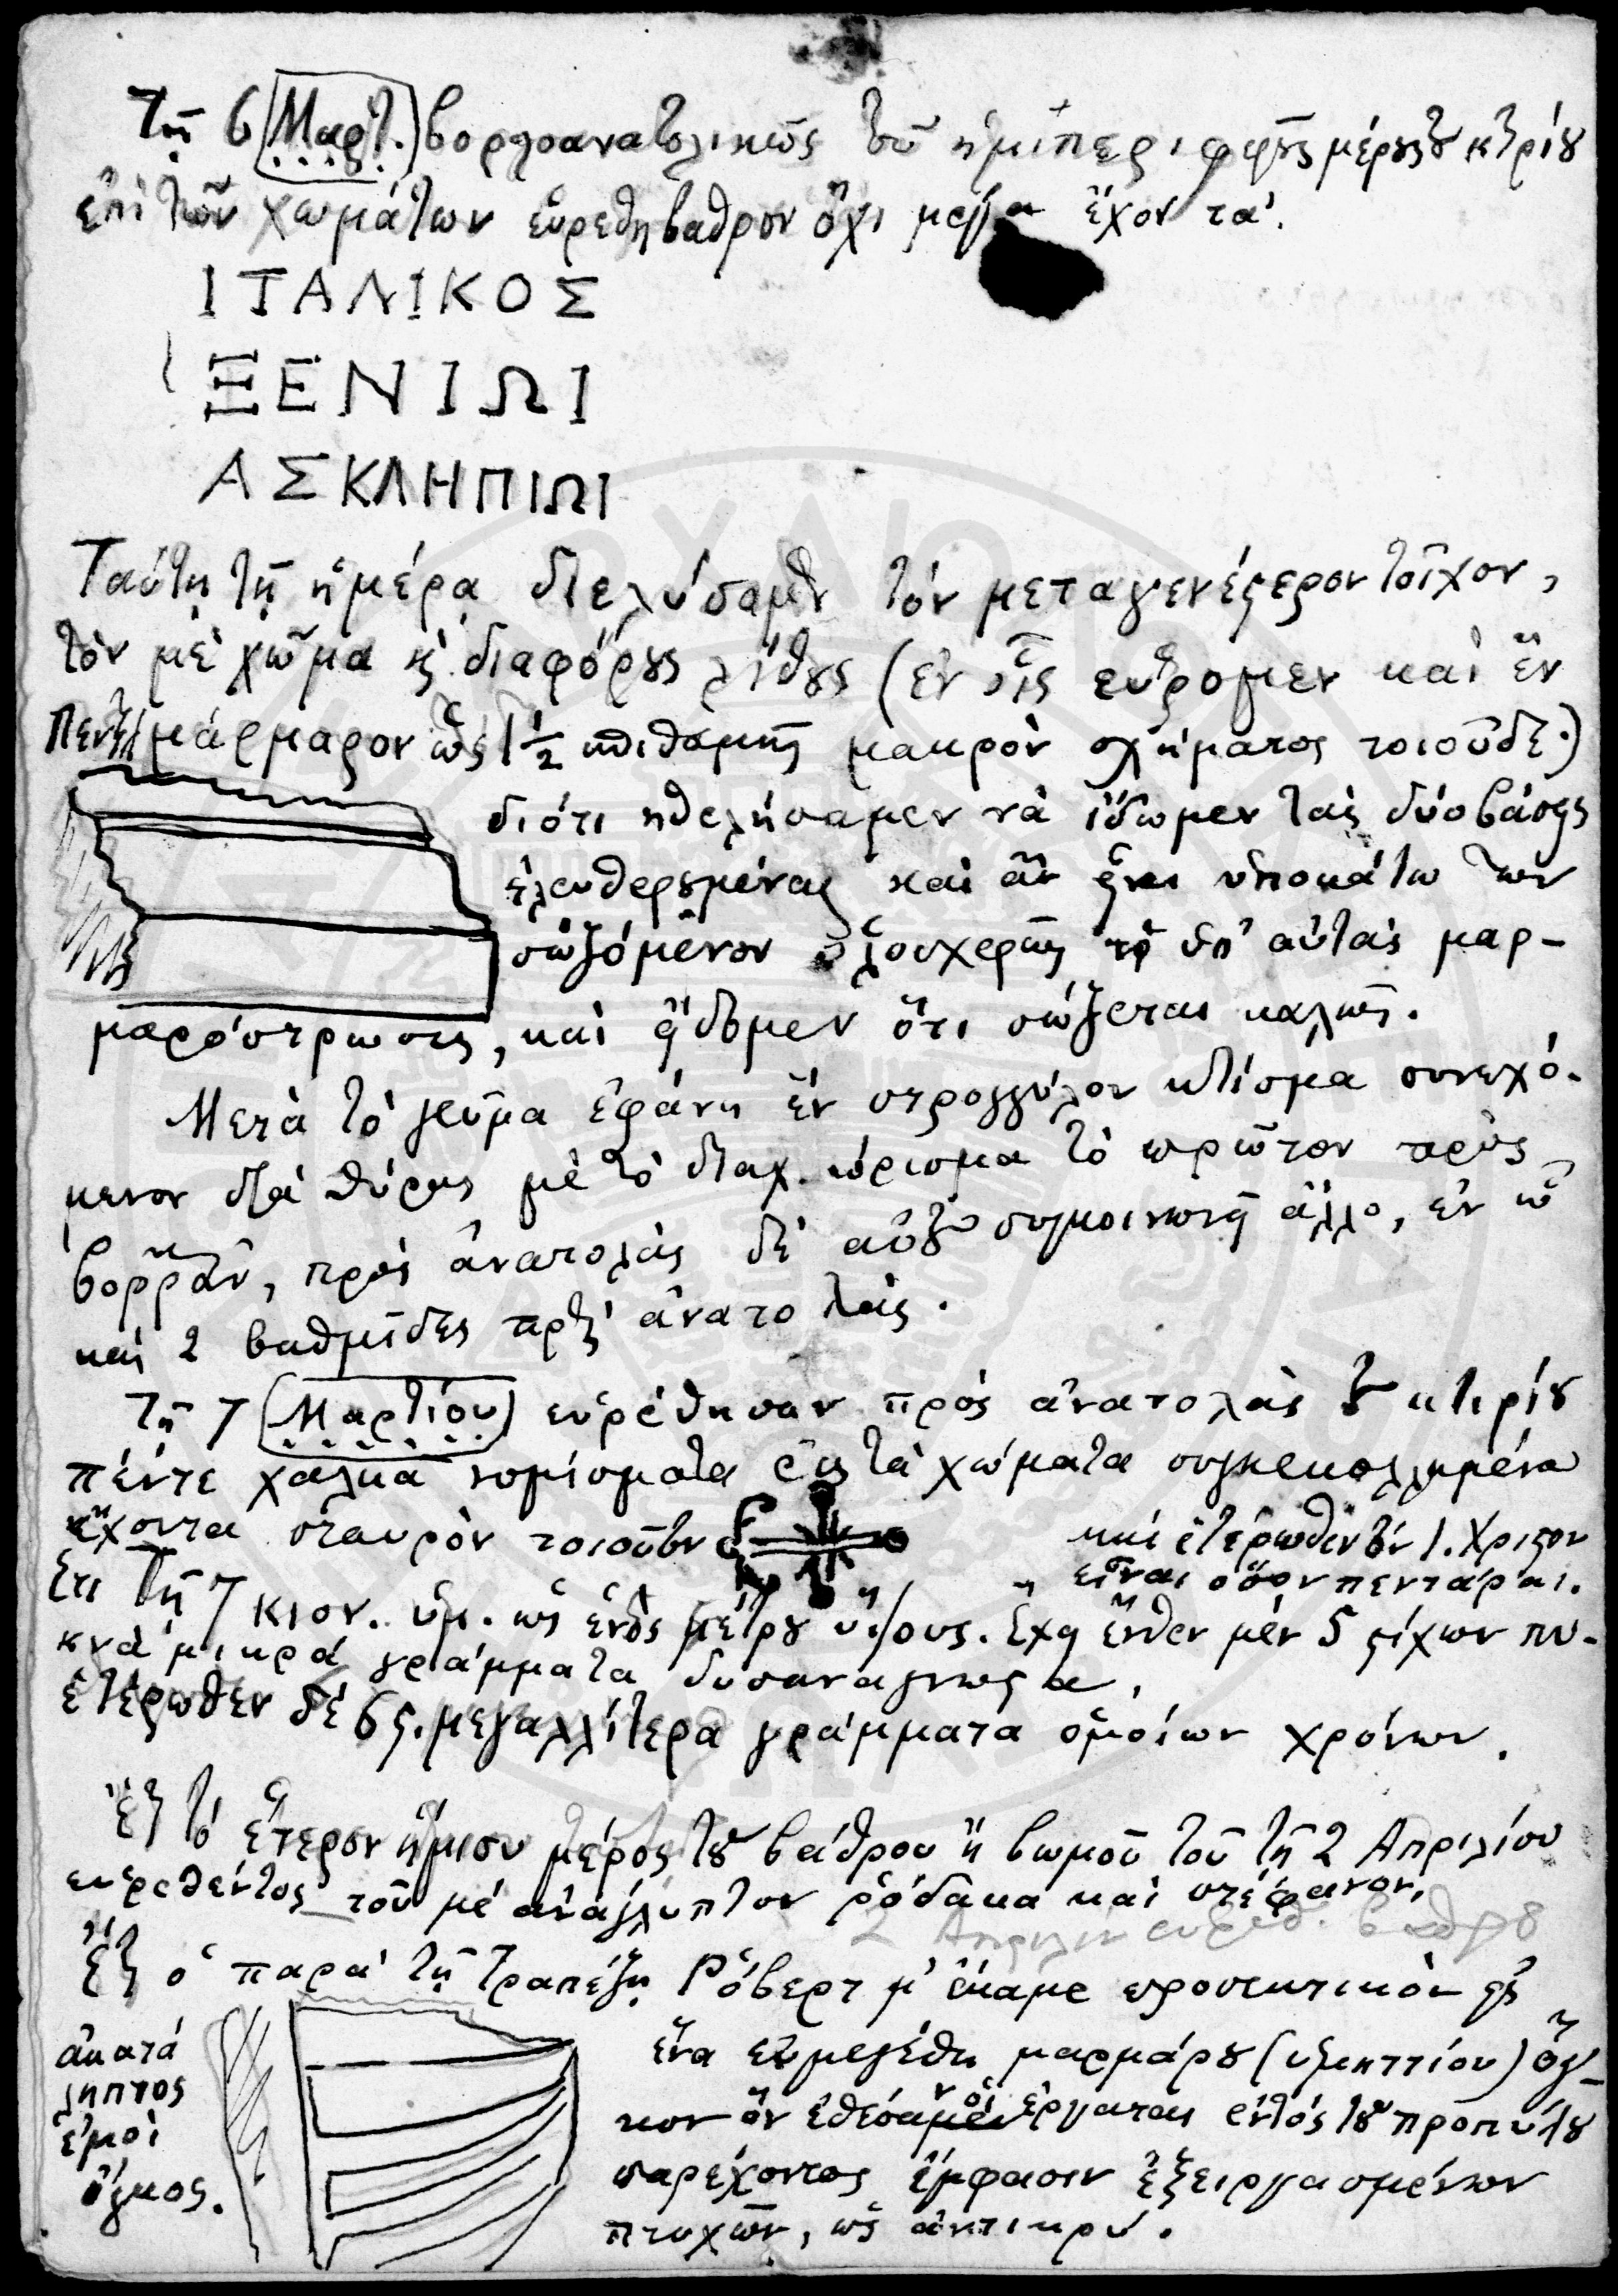 Τῇ 6 Μαρτ. βορροανατολικῶς τοῦ ἡμιπεριφεροῦς μέρους τοῦ κτιρίου
ἐπὶ τῶν χωμάτων εὑρέθη βάθρον ὄχι μέγα ἔχον τά.
ΙΤΑΛΙΚΟΣ
ΞΕΝΙΩΙ
ΑΣΚΛΗΠΙΩΙ
Ταύτῃ τῇ ἡμέρᾳ διελύσαμεν τὸν μεταγενέστερον τοῖχον,
τὸν μὲ χῶμα κ̀ διαφόρους λίθους (ἐν οἷς εὕρομεν καὶ ἓν
μάρμαρον ὡς 1 1/2 πιθαμῆς μακρὸν σχήματος τοιοῦδε.)
διότι ἠθελήσαμεν νὰ ἴδωμεν τὰς δύο βάσεις
ἐλευθερωμένας καὶ ἂν εἶναι ὑποκάτω των
σωζόμενον ὁλοσχερῶς τὸ ὑπ' αὐτὰς μαρ-
μαρόστρωτον, καὶ εἴδομεν ὅτι σώζεται καλῶς.
Μετὰ τὸ γεῦμα ἐφάνη ἓν στρογγύλον κτίσμα συνεχό-
μενον διὰ θύρας μὲ τὸ διαχώρισμα τὸ πρῶτον πρὸς
βορρᾶν, πρὸς ἀνατολὰς δὲ αὐτοῦ συγκοινωνεῖ ἄλλο, ἐν ᾧ
καὶ 2 βαθμῖδες πρὸς ἀνατολάς.
Τῇ 7 Μαρτίου εὑρέθησαν πρὸς ἀνατολὰς τοῦ κτιρίου
πέντε χαλκᾶ νομίσματα εἰς τὰ χώματα συγκεκολλημένα
ἔχοντα σταυρὸν τοιοῦτον καὶ ἑτέρωθεν τὸν Ι. Χριστὸν
εἶναι ὅσον πεντάραι.
Ἔτι Τῇ 7 κιον. ὑμ. ὡς ἑνὸς μέτρου ὕψους. Ἔχει ἔνθεν μὲν 5 στίχων πυ-
κνὰ μικρὰ γράμματα δυσανάγνωστα,
ἑτέρωθεν δὲ 6 στ. μεγαλλίτερα γράμματα ὁμοίων χρόνων.
Ἔτι τὸ ἕτερον ἥμισυ μέρος τοῦ βάθρου ἢ βωμοῦ τοῦ τῇ 2 Ἀπριλίου
εὑρεθέντος τοῦ μὲ ἀνάγλυπτον ῥόδακα καὶ στέφανον.
2 Ἀπριλίου εὑρεθ. βάθρου
Ἔτι ὁ παρὰ τῇ Τραπέζῃ Ῥόβερτ μ' ἔκαμε προσεκτικὸν εἰς
ἕνα εὐμεγέθη μαρμάρου (ὑμηττίου) ὄγ-
κον ὃν ἔθεσαν οἱ ἐργάται ἐντὸς τοῦ προπύλου
παρέχοντος ἔμφασιν ἐξειργασμένων
πτυχῶν, ὡς ἀντικρύ.
ἀκατά
ληπτος
ἐμοὶ
ὄγκος.